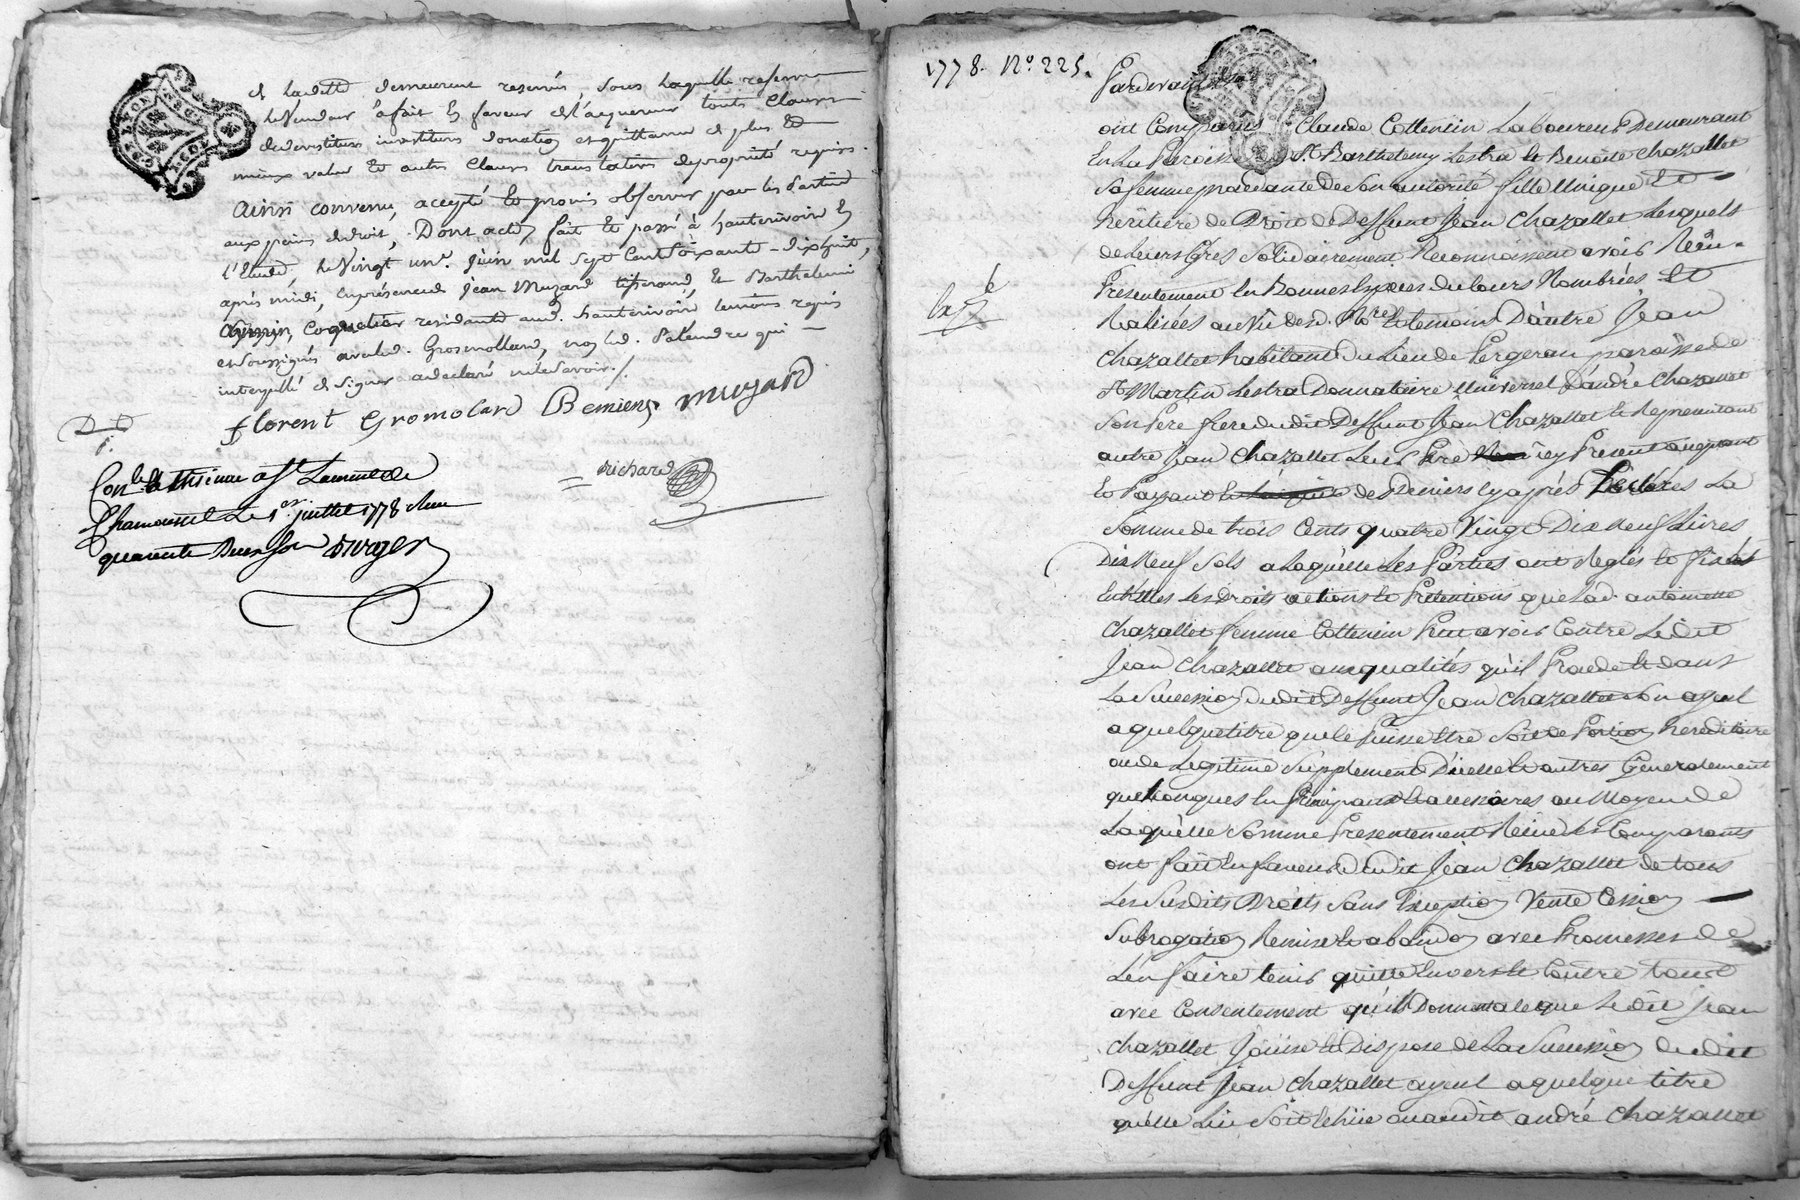 et laditte demeurent reservés, sous laquelle reserve
le Vendeur a fait en faveur de l'acquereur touts clauses
de devestiture, investiture donation et quittance de plus et
mieux value et autres clauses translatives de propriété requises.
Ainsi convenu, accepté et promis observer par les Parties
aux peines de droit, Dont acte, fait et passé à hauterivoire En
l'Etude, le Vingt un.e Juin mil sept Cent soixante-dixhuit,
après midi, en présence de Jean Muzard tisserand, et Barthelemi
coquetier residants aud. hauterivoire temoins requis
et soussignés avec led. Gromollard, non led. Palandre qui
interpellé de signer a declaré ne le savoir ./.
florent Gromolard Bemiens muzard
richard
Con.lé à St Laurent de
Chamousset le 1er juillet 1778 Reçu
quarante Deux sols
CONT. LYON
1778. No. 225.
Pardevant
ont Comparus Claude Cottencin Laboureur Demeurant
En La Paroisse St Barthelemy Lestra et Benoîte Chazallet
Sa femme procedante de son autorité fille Unique Et
héritiere de Droit de Deffunt Jean Chazallet Lesquels
de Leurs Grés Solidairement Reconnoissent avoir Reçu
Presentement En Bonnes Especes du Cours Nombrées Et
Realisées au Vû des d. Nre. et temoins D'autre Jean
Chazallet habitant du Lieu de Pergerau paroisse de
St Martin Lestra Donnataire Universel D'andré Chazallet
Son Pere frere dudit Deffunt Jean Chazallet et Representant
autre Jean Chazallet Leur Pere icy Present acceptant
et Payant de Deniers cy après Declarés La
Somme de trois Cents quatre Vingt Dix Neuf Livres
Dix Neuf Sols a Laquelle Les Parties ont Reglés et fixés
Entr'Elles Les Droits actions et Pretentions que Lad. antoinette
Chazallet femme Cottencin Peut avoir Contre Ledit
Jean Chazallet aux qualités qu'il Procede et dans
La Succession dudit Deffunt Jean Chazallet Son ayeul
a quelque titre que le Puisse Etre Soit de Portion Hereditaire
ou de Legitime Supplement D'icelle et autres Generalement
quelconques En Principaux et accessoires au Moyen de
Laquelle Somme Presentement Reçue Les Comparants
ont fait En faveur dudit Jean Chazallet de tous
Les Susdits Droits Sans Exception Vente Cession
Subrogation Remise et abandon avec Promesses de
L'en faire tenir quitte Envers et Contre tous
avec Consentement qu'ils Donnent a le que Ledit Jean
Chazallet Jouisse et Dispose de La Succession dudit
Deffunt Jean Chazallet ayeul a quelque titre
qu'elle Lui Soit Echüe ou audit andré Chazallet